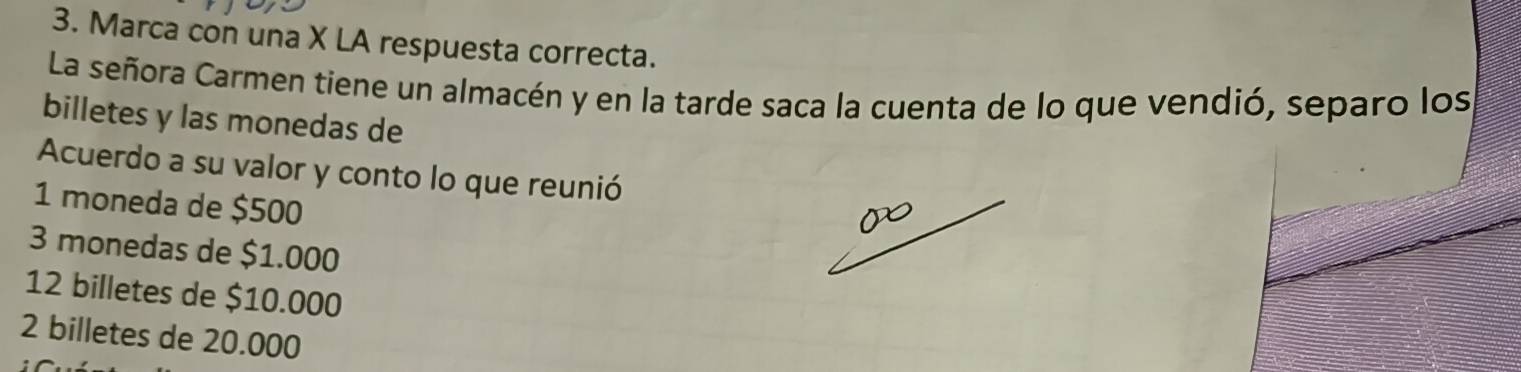 3. Marca con una X LA respuesta correcta.
La señora Carmen tiene un almacén y en la tarde saca la cuenta de lo que vendió, separo los
billetes y las monedas de
Acuerdo a su valor y conto lo que reunió
1 moneda de $500
3 monedas de $1.000
12 billetes de $10.000
2 billetes de 20.000